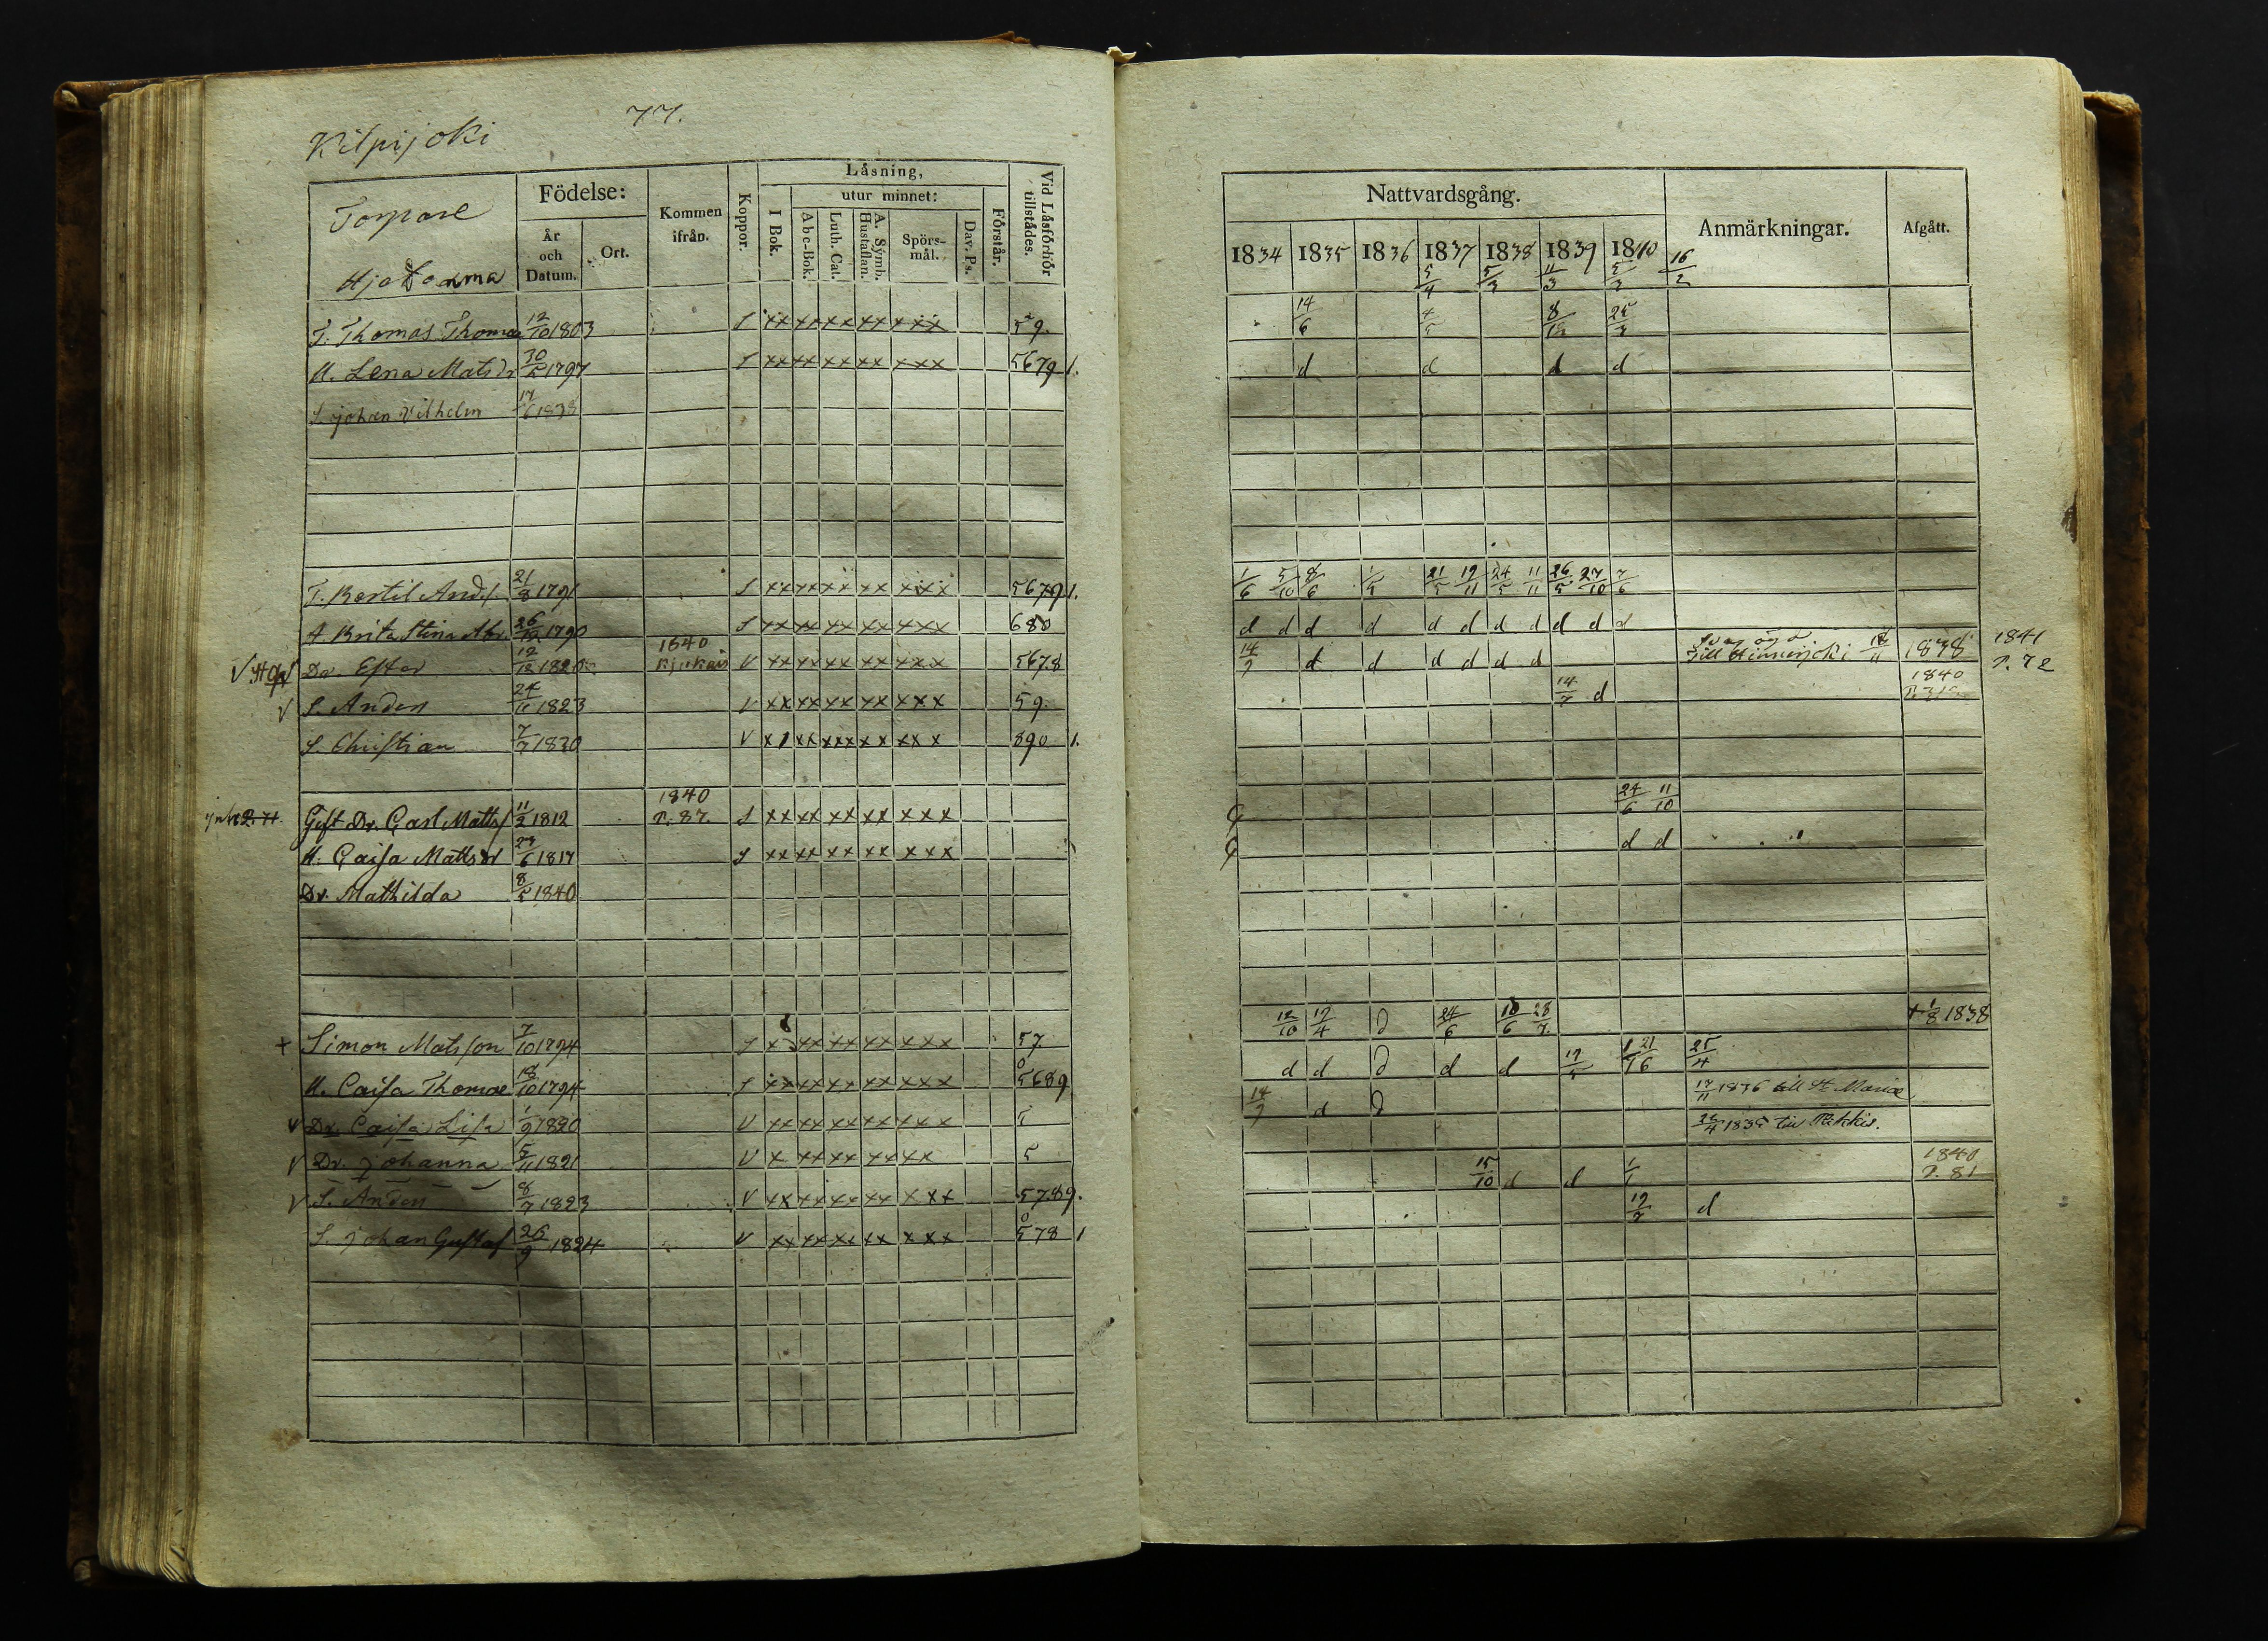 77.
Kilpijoki
Torpare
Födelse:
År och Datum.
Ort.
Kommen ifrån.
Koppor.
Låsning,
I Bok.
utur minnet:
Abc-Bok.
Luth. Cat.
A. Symb. Hustaflan.
Spörs-mål.
Dav. Ps.
Förstår.
Vid Låsförhör tillstådes.
T. Thomas Thomæ 12/10 1803 S xx xx xx xx xxx 59.
H. Lena Matsdr 30/5 1797 S xx xx xx xx xxx 5679 1.
S. Johan Vilhelm 17/6 1838
T. Bertil And.s. 21/8 1791 S xx xx xx xx xxx 5679 1.
H. Brita Stina Abr. 26/12 1790 S xx xx xx xx xxx 680
Dr. Ester 12/12 1820 1840 V xx xx xx xx xxx 5678
V S. Anders 24/11 1823 V xx xx xx xx xxx 59.
S. Christian 7/7 1830 V 890 1.
Gift Dr. Carl Matts 11/2 1812 1840 P. 87 S xx xx xx xx xxx
H. Caisa Mattsdr 27/6 1817 S xx xx xx xx xxx
Dr. Mathilda 8/5 1840
+ Simon Matsson 7/10 1794 S xx xx xx xxx 57
H. Caisa Thomæ 18/10 1794 S xx xx xx xx xxx 5689
V Dr. Caisa Lisa 1/9 1820 V xx xx xx xx xxx 5
V Dr. Johanna 5/11 1821 V x xx xx xx xx 5
V S. Anders 8/7 1823 V xx xx xx xx xxx 5789.
S. Johan Gustaf 26/9 1824 V xx xx xx xx xxx 578 1
Nattvardsgång.
Anmärkningar.
Afgått.
1834 1835 1836 1837 1838 1839 1840
5/4 5/3 11/3 5/3 16/2
14/6 4/5 8/12 25/3
d d d d
1/6 5/10 8/6 1/5 21/5 19/11 24/5 11/11 26/5 27/10 7/6
d d d d d d d d d d d
14/7 d d d d d d
Till Hinnerjoki 1838 1841 P. 72
14/7 d 1840
24/6 11/10
d d
12/10 17/4 d 24/6 10/6 28/7 + 1/8 1838
d d d d d 19/5 21/6 25/4
14/7 d d 17/11 1836 till St. Mariæ
26/4 1835 till Pikkis.
15/10 d d 1/1 1840 P. 81
19/7 d